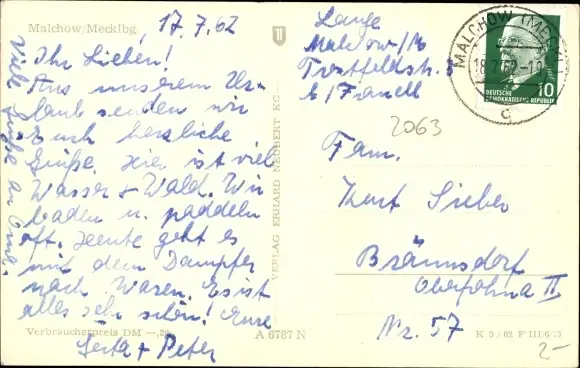 Malchow/Mecklbg.
17.7.62
Ihr Lieben!
Aus unserem Ur-
laub senden wir
Euch herzliche
Grüße. Hier ist viel
Wasser + Wald. Wir
baden u. paddeln
oft. Heute geht es
mit dem Dampfer
nach Waren. Es ist
alles sehr schön! Eure
+ Peter
Viele Grüße an
Verbraucherpreis DM —,20
A 6787 N
VERLAG ERHARD NEUBERT KG
Lange
Malchow/M
b/
MALCHOW (MECKL)
18.7.62
g
10
DEUTSCHE
DEMOKRATISCHE REPUBLIK
2063
Fam.
Kurt Sieber
Bräunsdorf
Oberfrohna II
Nr. 57
K 5/62 F III/6/15
2-